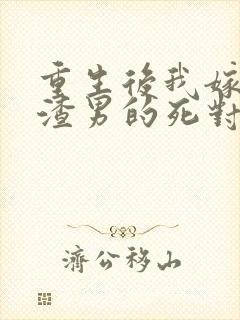 重生後我嫁
渣男的死對
濟公移山